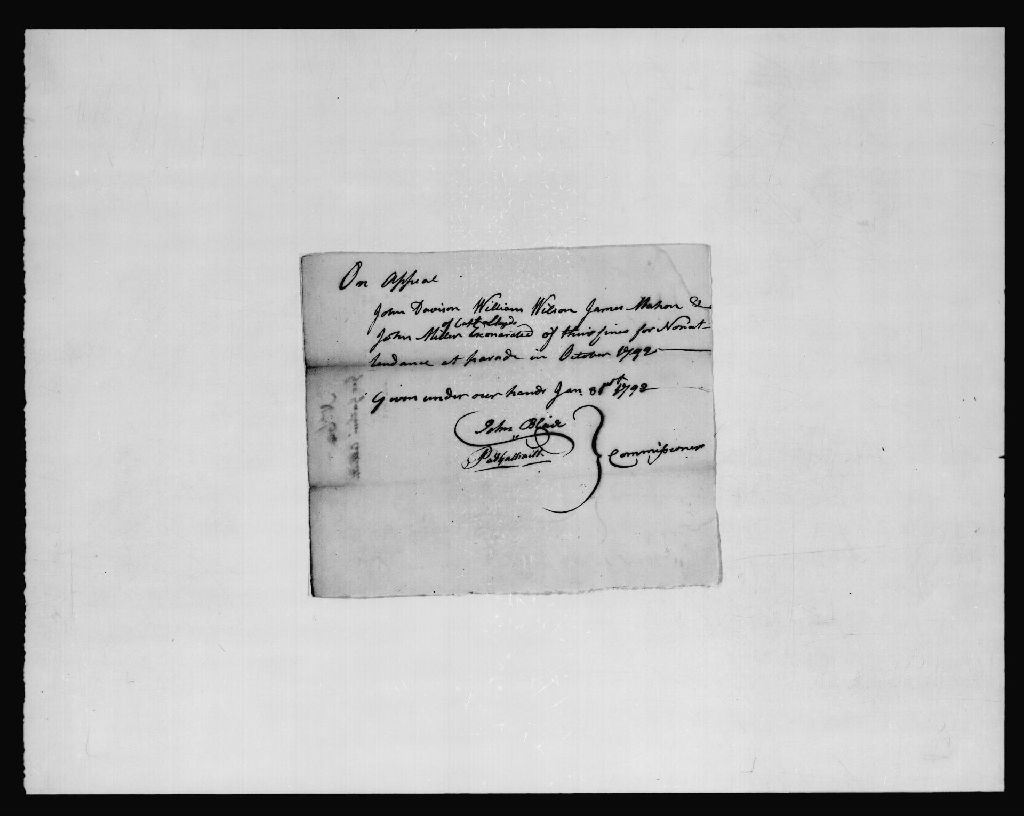 On Appeal
John Davison William Wilson James Mahon &
of Capt Lloyds
John Miller Exonerated of their fines for Nonat-
tendance at parade in October 1792
Given under our hands Jan 31st 1793
John Blair
Commissioners